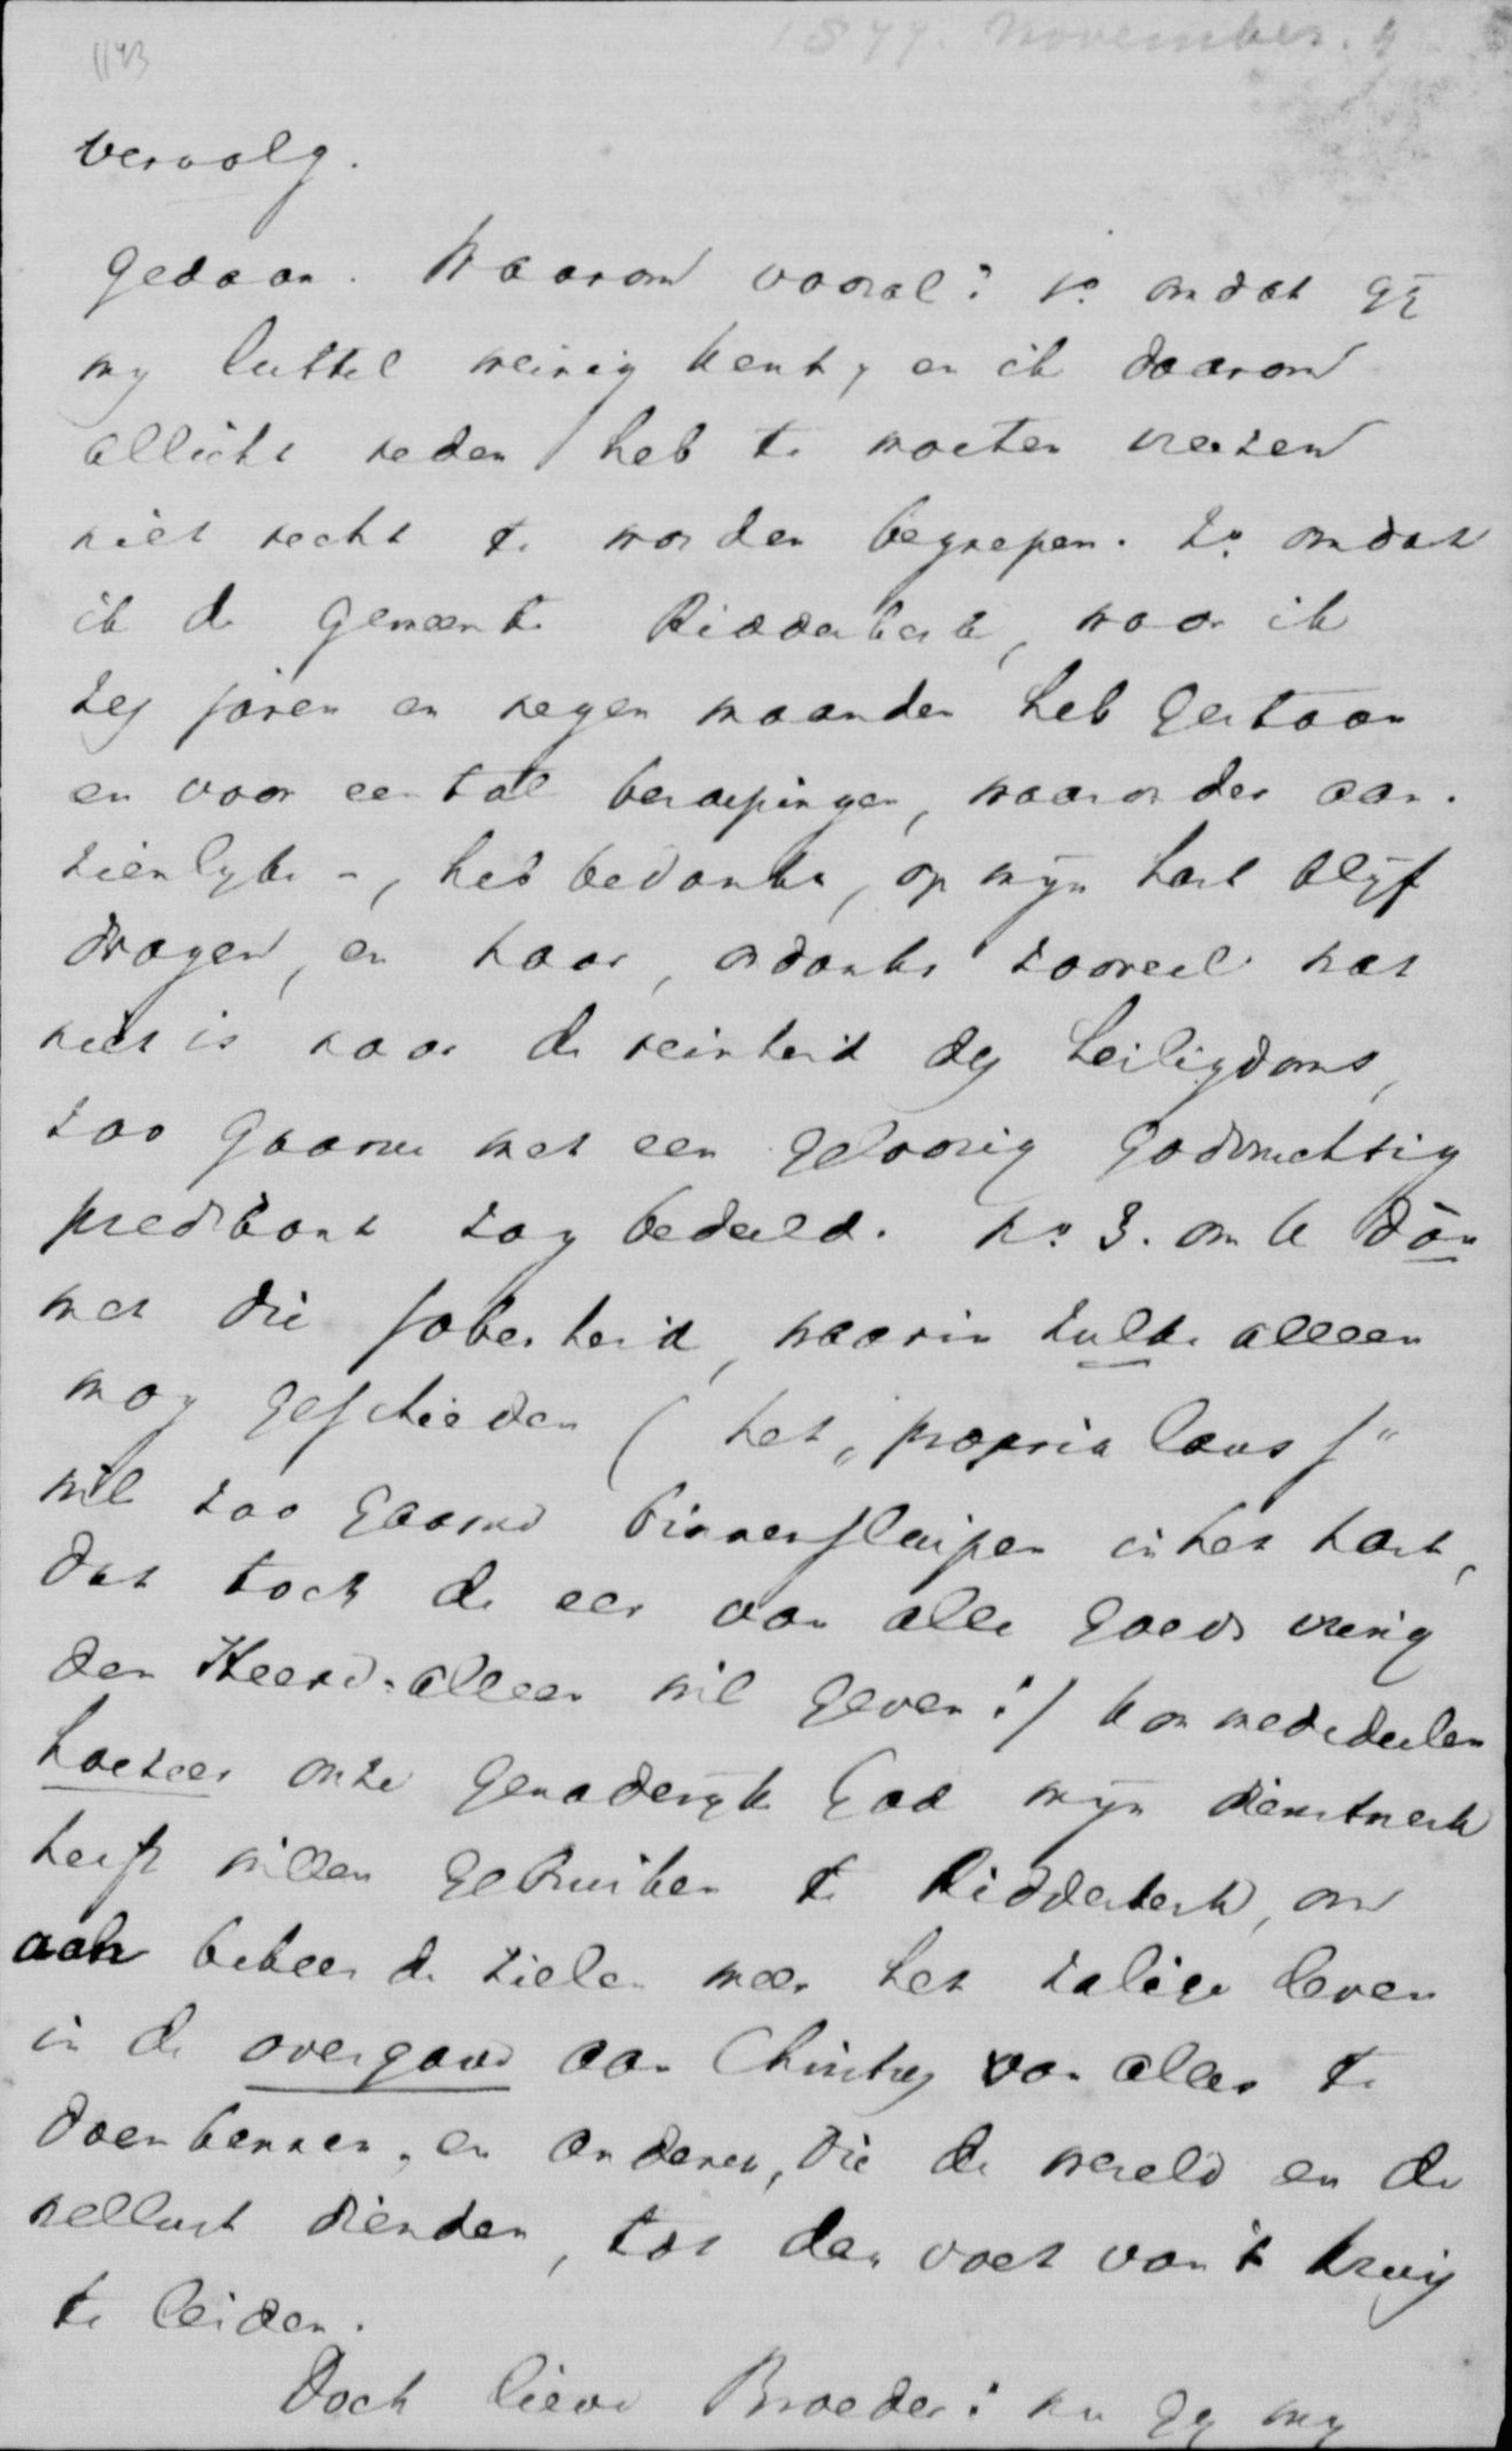 1877. November. 4
1143
vervolg.
gedaan. Waarom vooral? 1o omdat gij
my luttel weinig kent, en ik daarom
allicht reden heb te moeten vreezen
niet recht te worden begrepen. 2o omdat
ik de gemeente Ridderkerk, waar ik
zes jaren en negen maanden heb gestaan
en voor een tal beroepingen, waaronder aan-
zienlyke -, heb bedankt, op mijn hart blijf
dragen, en haar, ondanks zooveel wat
niet is naar de reinheid des heiligdoms,
zoo gaarne met een geloovig godvruchtig
predikant zag bedeeld. No 3. om U dán
met die soberheid, waarin zulks alleen
mag geschieden (het „propria laus s“
wil zoo gaarne binnensluipen in het hart,
dat toch de eer van alle goeds vierig
den Heere alleen wil geven!) kon mededeelen
hoezeer onze genaderijke God mijn dienstwerk
heeft willen gebruiken te Ridderkerk, om
aan bekeerde zielen meer het zalige leven
in de overgave aan Christus van alles te
doen kennen, en anderen, die de wereld en de
wellust dienden, tot den voet van 't kruis
te leiden.
Doch lieve Broeder! nu gy my